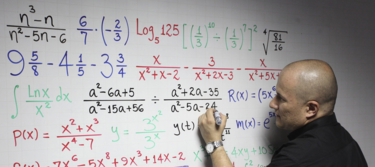 n³-n / n²-5n-6   6/7·(-2/3)   Log₅125   [(1/3)¹⁰ ÷ (1/3)⁷]²   ⁴√(81/16)
9 5/8 - 4 1/5 - 3 3/4   x / x²+x-2 - 3 / x²+2x-3 - x / x²+5x
∫ Lnx/x² dx   a²-6a+5 / a²-15a+56 ÷ a²+2a-35 / a²-5a-24   R(x)=(5x
P(x)= x²+x³ / x⁴-7   y= 3ˣ   y(t)   m(x)=e
7x⁶-5x⁸+9x³+14x-2